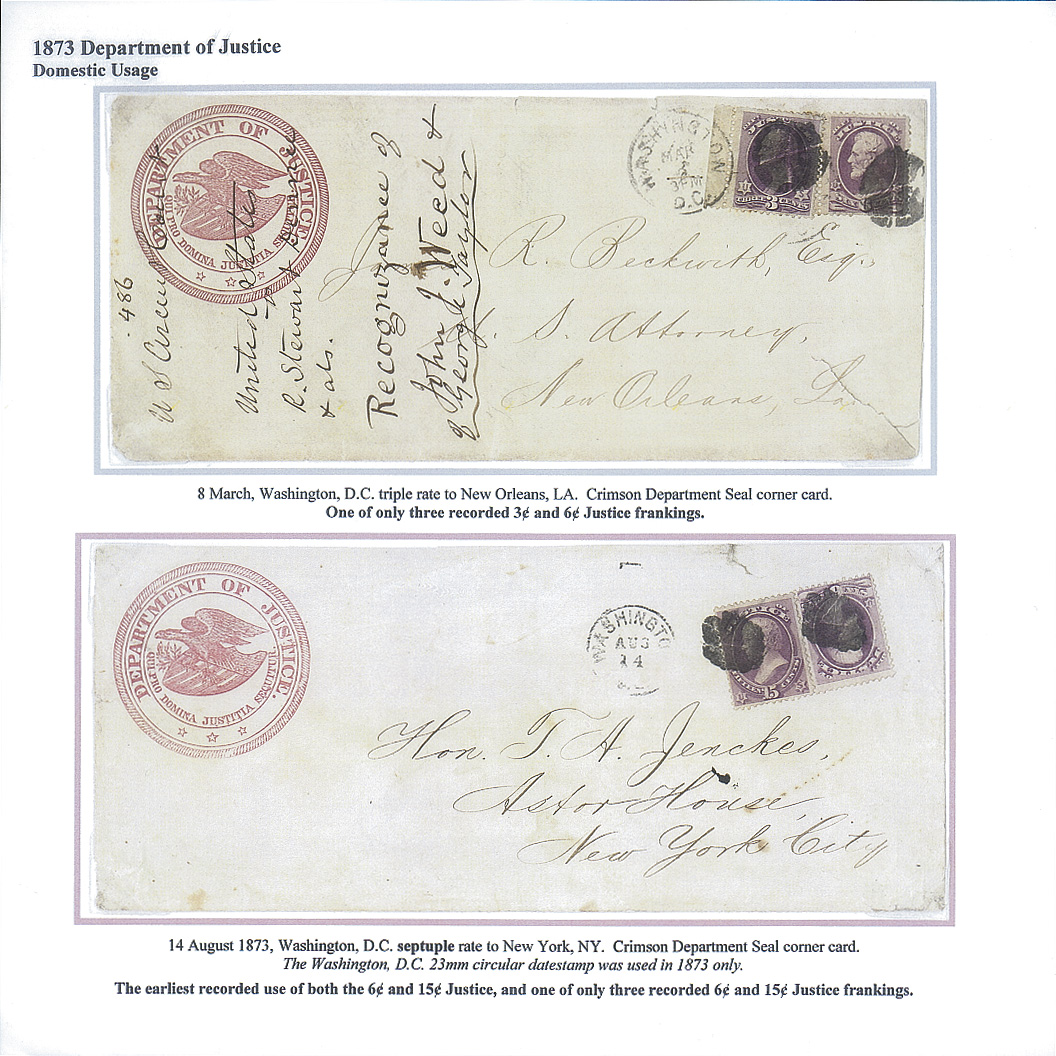 1873 Department of Justice
Domestic Usage
DEPARTMENT OF JUSTICE.
QUI PRO DOMINA JUSTITIA SEQUITUR
486
U S Circuit Court
United States
R. Stewart
& als.
Recognozance of
John J. Weed &
George Taylor
WASHINGTON
MAR
8
3PM
D.C.
3
THREE CENTS
J. R. Beckwith, Esq.,
U. S. Attorney,
New Orleans, La
8 March, Washington, D.C. triple rate to New Orleans, LA. Crimson Department Seal corner card.
One of only three recorded 3¢ and 6¢ Justice frankings.
DEPARTMENT OF JUSTICE.
QUI PRO DOMINA JUSTITIA SEQUITUR.
WASHINGTO
AUG
14
15
FIFTEEN CENTS
Hon. T. A. Jenckes,
Astor House,
New York City
14 August 1873, Washington, D.C. septuple rate to New York, NY. Crimson Department Seal corner card.
The Washington, D.C. 23mm circular datestamp was used in 1873 only.
The earliest recorded use of both the 6¢ and 15¢ Justice, and one of only three recorded 6¢ and 15¢ Justice frankings.